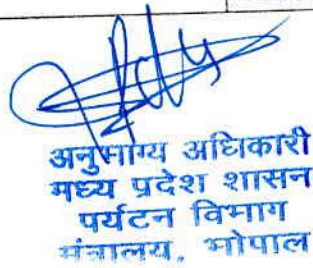 अनुभाग्य अधिकारी
मध्य प्रदेश शासन
पर्यटन विभाग
मंत्रालय, भोपाल